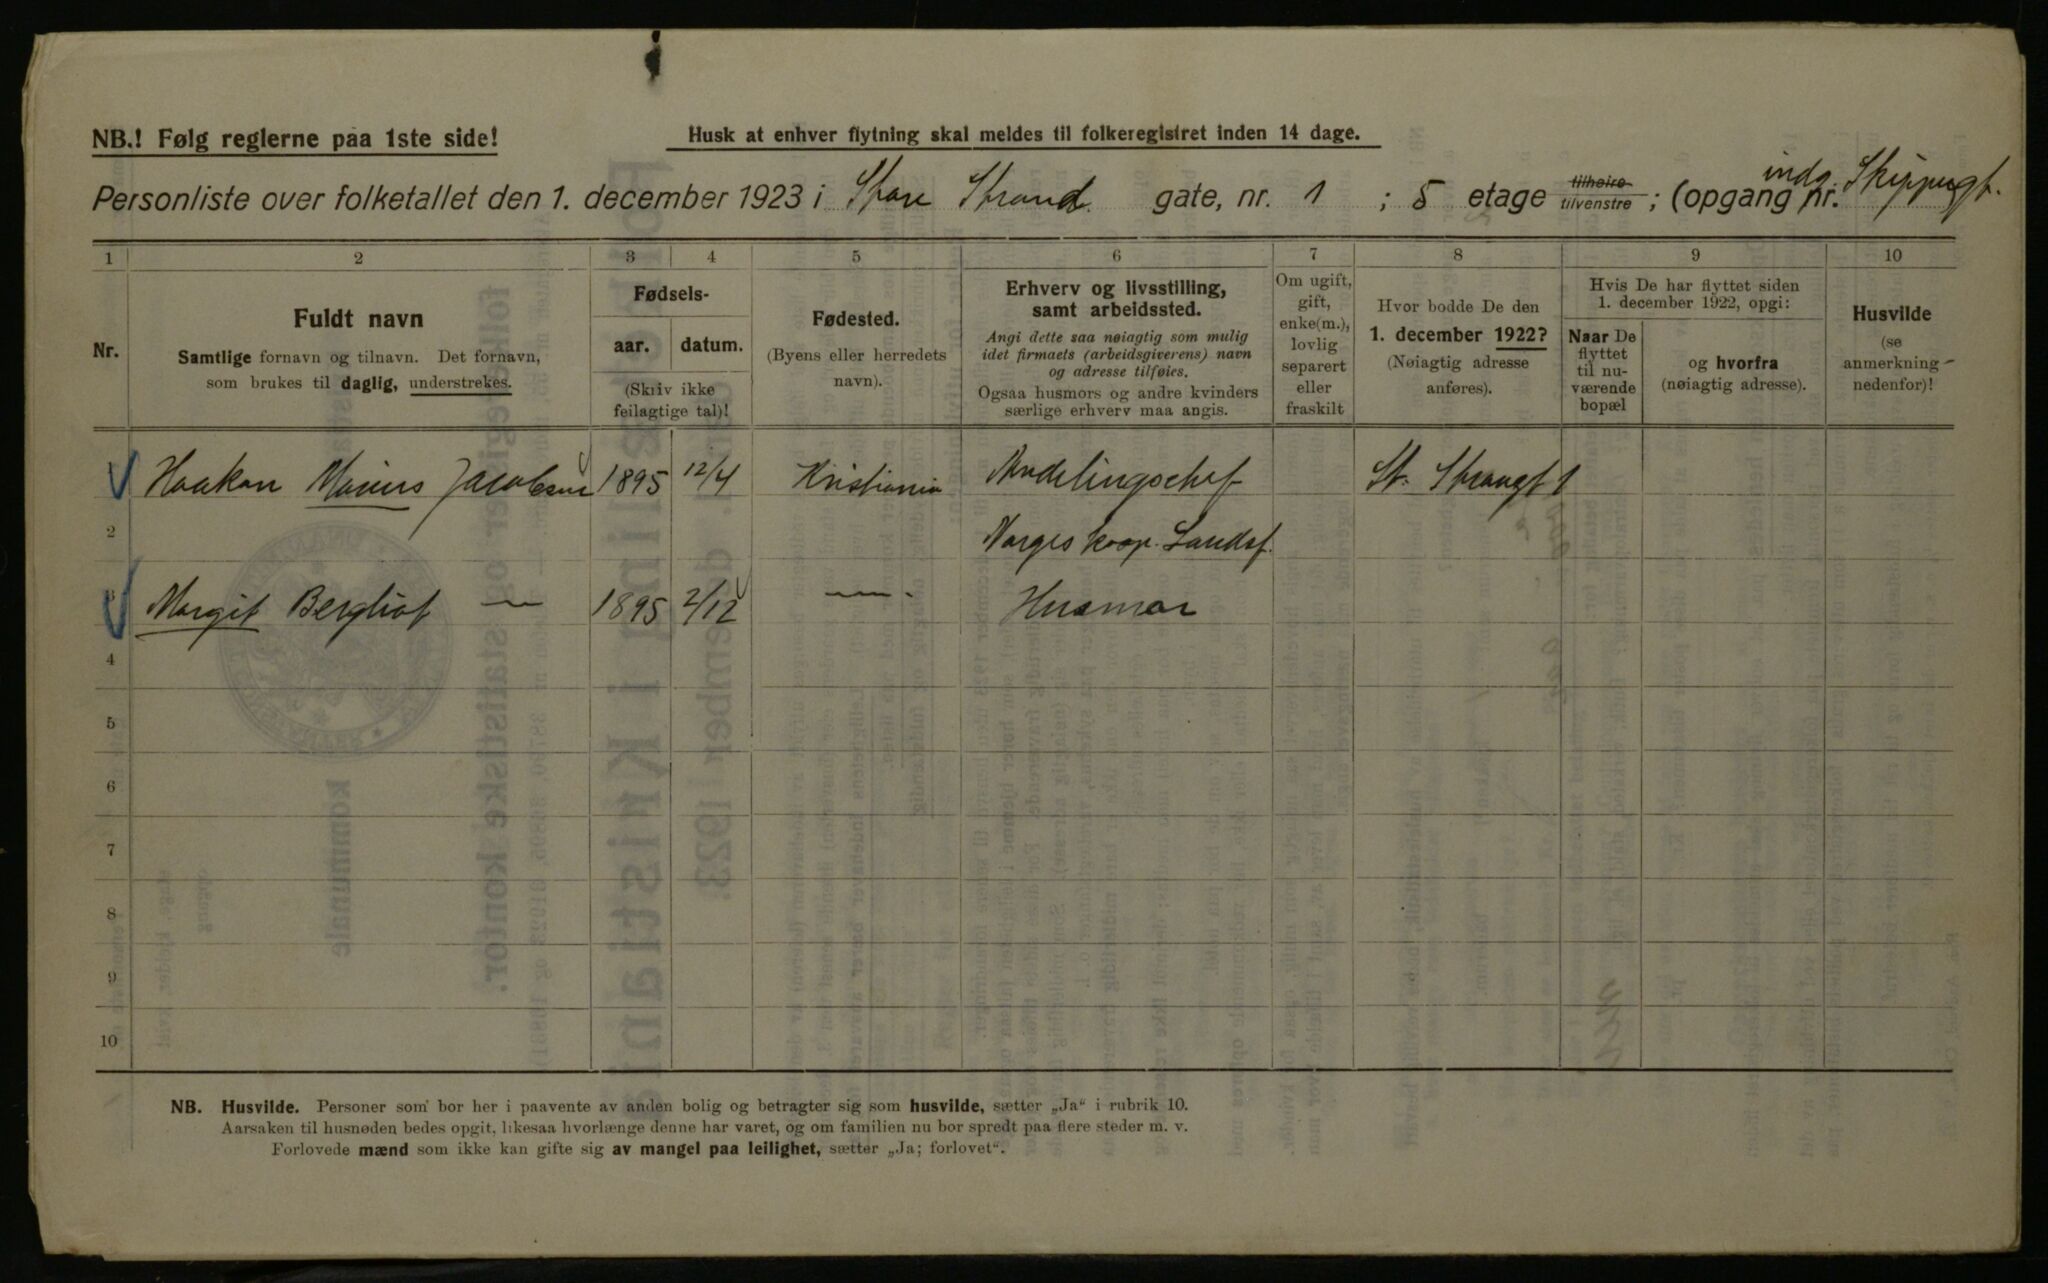 NB.! Følg reglerne paa 1ste side!
Husk at enhver flytning skal meldes til folkeregistret inden 14 dage.
Personliste over folketallet den 1. december 1923 i Store Strand gate, nr. 1 ; 5 etage tilhøire tilvenstre ; (opgang nr. indg. Skippergt.
1 2 3 4 5 6 7 8 9 10
Nr.
Fuldt navn
Samtlige fornavn og tilnavn. Det fornavn,
som brukes til daglig, understrekes.
Fødsels-
aar. datum.
(Skriv ikke
feilagtige tal)!
Fødested.
(Byens eller herredets
navn).
Erhverv og livsstilling,
samt arbeidssted.
Angi dette saa nøiagtig som mulig
idet firmaets (arbeidsgiverens) navn
og adresse tilføies.
Ogsaa husmors og andre kvinders
særlige erhverv maa angis.
Om ugift,
gift,
enke(m.),
lovlig
separert
eller
fraskilt
Hvor bodde De den
1. december 1922?
(Nøiagtig adresse
anføres).
Hvis De har flyttet siden
1. december 1922, opgi:
Naar De
flyttet
til nu-
værende
bopæl
og hvorfra
(nøiagtig adresse).
Husvilde
(se
anmerkning
nedenfor)!
Haakon Marius Jacobsen 1895 12/4 Kristiania Avdelingschef St. Strandgt 1
2 Norges koop. Landsf.
3 Margit Bergliot — 1895 2/12 — Husmor
4
5
6
7
8
9
10
NB. Husvilde. Personer som bor her i paavente av anden bolig og betragter sig som husvilde, sætter „Ja“ i rubrik 10.
Aarsaken til husnøden bedes opgit, likesaa hvorlænge denne har varet, og om familien nu bor spredt paa flere steder m. v.
Forlovede mænd som ikke kan gifte sig av mangel paa leilighet, sætter „Ja; forlovet“.